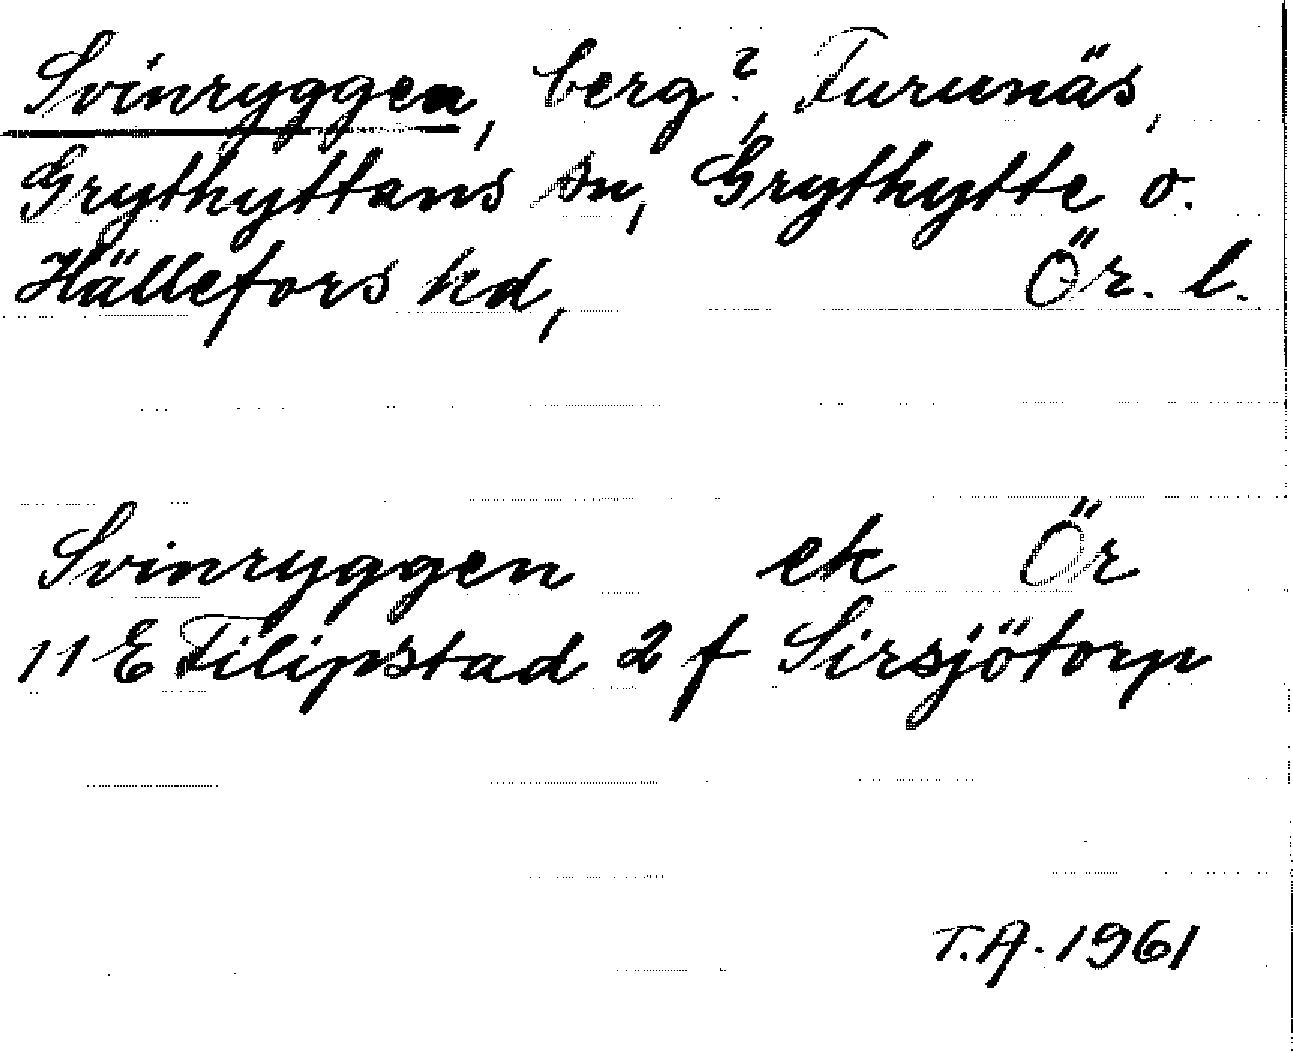 Svinryggen, berg?, Furunäs,
Grythyttans sn, Grythytte o.
Hällefors hd, Ör. l.
Svinryggen ek Ör
11 E Filipstad 2 f Sirsjötorp
T.A. 1961